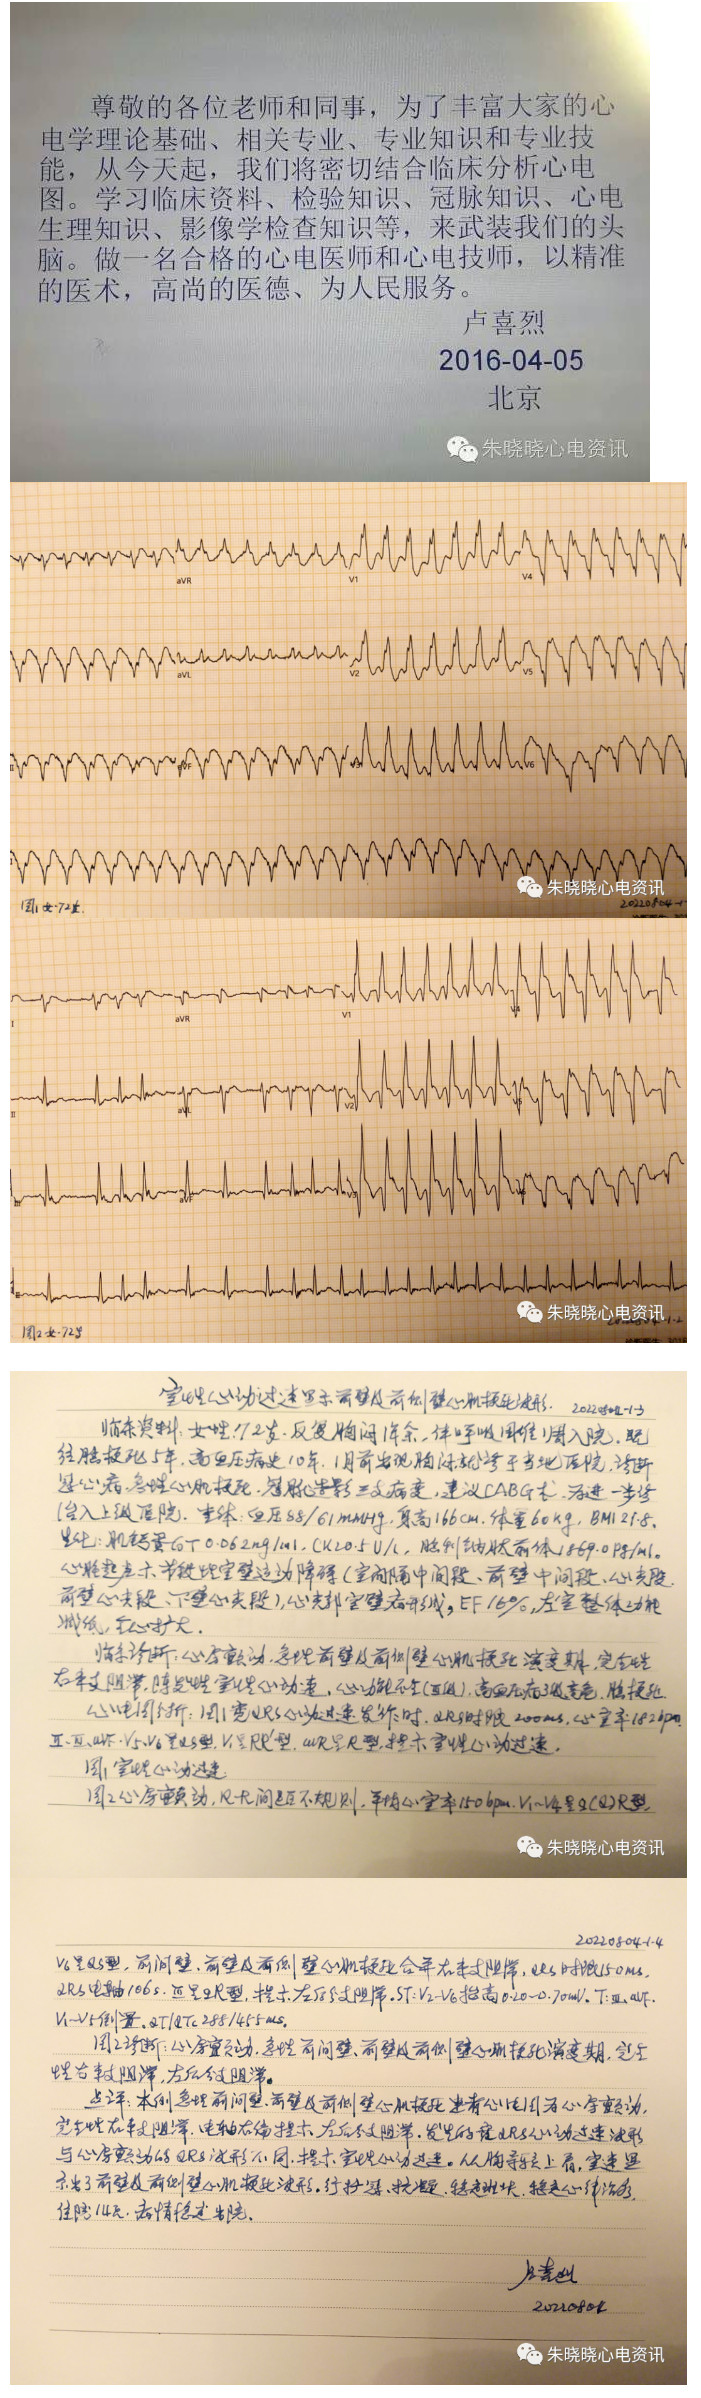 尊敬的各位老师和同事，为了丰富大家的心
电学理论基础、相关专业、专业知识和专业技
能，从今天起，我们将密切结合临床分析心电
图。学习临床资料、检验知识、冠脉知识、心电
生理知识、影像学检查知识等，来武装我们的头
脑。做一名合格的心电医师和心电技师，以精准
的医术，高尚的医德、为人民服务。
卢喜烈
2016-04-05
北京
朱晓晓心电资讯
aVR V1 V4
aVL V2 V5
aVF V3 V6
朱晓晓心电资讯
图1 女·72岁 20220804-1-
I aVR V1 V4
II aVL V2 V5
III aVF V3
朱晓晓心电资讯
图2 女·72岁
室性心动过速显示前壁及前侧壁心肌梗死波形 20220804-1-3
临床资料：女性，72岁，反复胸闷1年余，伴呼吸困难1周入院。既
往脑梗死5年，高血压病史10年，1月前出现胸闷就诊于当地医院，诊断
冠心病，急性心肌梗死，冠脉造影三支病变，建议CABG术，为进一步诊
治入上级医院。查体：血压88/61mmHg，身高166cm，体重60kg，BMI 21.8。
生化：肌钙蛋白T 0.062ng/ml，CK 20.5U/L，脑利钠肽前体1869.0pg/ml。
心脏超声示节段性室壁运动障碍（室间隔中间段、前壁中间段、心尖段
前壁心尖段、下壁心尖段），心尖部室壁瘤形成，EF 16%，左室整体功能
减低，全心扩大。
临床诊断：心房颤动，急性前壁及前侧壁心肌梗死演变期，完全性
右束支阻滞，阵发性室性心动过速，心功能不全(III级)，高血压病3级高危，脑梗死
心电图分析：图1宽QRS心动过速发作时，QRS时限200ms，心室率182bpm，
II、III、aVF、V5、V6呈QS型，V1呈RR'型，aVR呈R型，提示室性心动过速。
图1室性心动过速
图2心房颤动，R-R间距不规则，平均心室率150bpm，V1~V4呈Q(q)R型，
朱晓晓心电资讯
20220804-1-4
V6呈QS型，前间壁、前壁及前侧壁心肌梗死合并右束支阻滞，QRS时限150ms，
QRS电轴106°，III呈qR型，提示左后分支阻滞。ST：V2~V6抬高0.20~0.70mV。T：III、aVF、
V1~V5倒置。QT/QTc 288/455ms。
图2诊断：心房颤动，急性前间壁、前壁及前侧壁心肌梗死演变期，完全
性右束支阻滞，左后分支阻滞。
点评：本例急性前间壁、前壁及前侧壁心肌梗死患者心电图为心房颤动，
完全性右束支阻滞，电轴右偏提示左后分支阻滞。发生的宽QRS心动过速波形
与心房颤动的QRS波形不同，提示室性心动过速。从胸导联上看，室速显
示出了前壁及前侧壁心肌梗死波形。行扩冠、抗凝、稳定斑块、稳定心律治疗，
住院14天，病情稳定出院。
卢喜烈
朱晓晓心电资讯